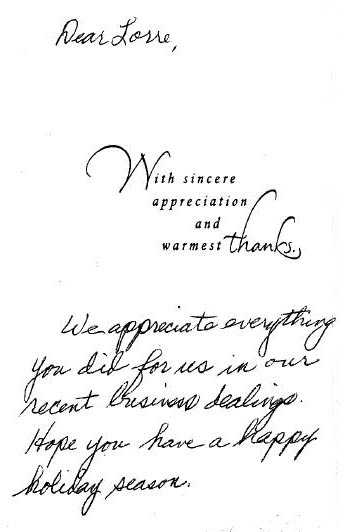 Dear Lorre,
With sincere
appreciation
and
warmest thanks.
We appreciate everything
you did for us in our
recent business dealings.
Hope you have a happy
holiday season.